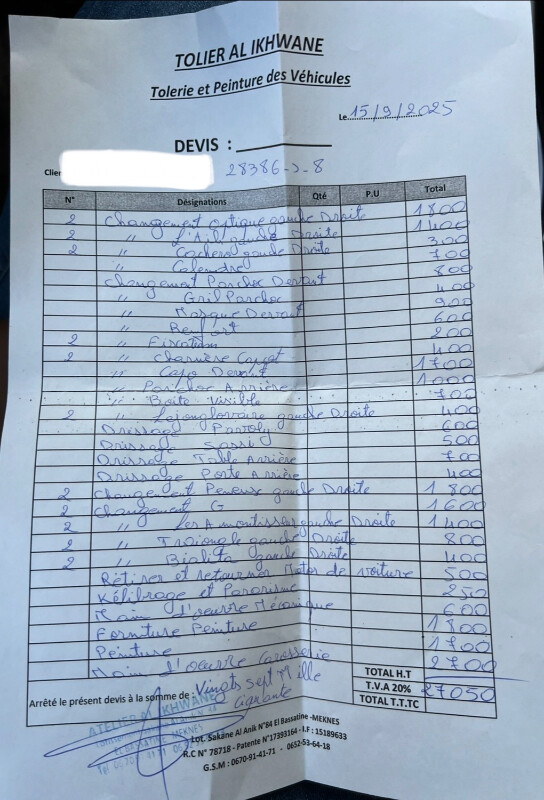 TOLIER AL IKHWANE
Tolerie et Peinture des Véhicules
Le 15/9/2025
DEVIS :
Clien 28386-د-8
N° Désignations Qté P.U Total
2 Changement optique gauche Droite 1800
2 " L'Aile gauche Droite 1400
2 " Cachers gauche Droite 300
" Calendre 700
Changement Parchoc Devant 800
" Gril Parchoc 400
" Masque Devant 900
" Renfort 600
2 " Fixation 200
2 " Charnière Capot 400
" Capo Devant 1700
" Parchoc Arrière 1000
" Boite Visible 700
2 " gauche Droite 400
Drissage 600
Drissage Sassi 500
Drissage Table Arrière 700
Drissage Porte Arrière 400
2 Changement Peneux gauche Droite 1800
2 Changement G 1600
2 " Les Amontisseur gauche Droite 1400
2 " gauche Droite 800
2 " Bialita gauche Droite 400
Rétirer et retourner Motor de voiture 500
Kélibrage et Pararisme 250
Main d'oeuvre Mécanique 600
Forniture Peinture 1800
Peinture 1700
Main d'oeuvre Carosserie 2700
TOTAL H.T
T.V.A 20% 27050
TOTAL T.T.TC
Arrêté le présent devis à la somme de : Vingts sept Mille
Cignante
ATELIER AL IKHWANE
Lot. Sakane Al Anik N°84 El Bassatine -MEKNES
R.C N° 78718 - Patente N°17393164 - I.F : 15189633
G.S.M : 0670-91-41-71 - 0652-53-64-18